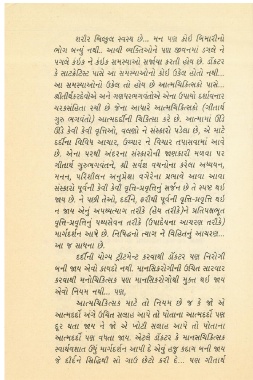 શરીર બિલ્કુલ સ્વસ્થ છે... મન પણ કોઈ બિમારીનો
ભોગ બન્યું નથી.. આવી વ્યક્તિઓને પણ જીવનમાં ડગલે ને
પગલે કંઇક ને કંઇક સમસ્યાઓ સર્જાયા કરતી હોય છે. ડૉક્ટર
કે સાઇકેટ્રિસ્ટ પાસે આ સમસ્યાઓનો કોઈ ઉકેલ હોતો નથી...
આ સમસ્યાઓનો ઉકેલ તો હોય છે આત્મચિકિત્સકો પાસે...
શ્રીતીર્થંકરદેવોએ અને ગણધરભગવંતોએ એના ઉપાયો દર્શાવનાર
ચરકસંહિતા રચી છે જેના આધારે આત્મચિકિત્સકો (ગીતાર્થ
ગુરુ ભગવંતો) આત્મદર્દીની ચિકિત્સા કરે છે. આત્મામાં ઊંડે
ઊંડે કેવી કેવી વૃત્તિઓ, વલણો ને સંસ્કારો પડેલા છે, એ માટે
દર્દીના વિવિધ આચાર, ઉચ્ચાર ને વિચાર તપાસવામાં આવે
છે. એના પરથી અંદરના સંસ્કારોની જાણકારી મળવા પર
ગીતાર્થ ગુરુભગવંતને, શ્રી સર્વજ્ઞ વચનોના કરેલા અધ્યયન,
મનન, પરિશીલન અનુપ્રેક્ષા વગેરેના પ્રભાવે આવા આવા
સંસ્કારો પૂર્વની કેવી કેવી વૃત્તિ-પ્રવૃત્તિનું સર્જન છે તે સ્પષ્ટ થઈ
જાય છે. ને પછી તેઓ, દર્દીને, ફરીથી પૂર્વની વૃત્તિ-પ્રવૃત્તિ થઇ
ન જાય એનું અપથ્યત્યાગ તરીકે (હેય તરીકે)ને પ્રતિપક્ષભૂત
વૃત્તિ-પ્રવૃત્તિનું પથ્યસેવન તરીકે (ઉપાદેયના આચરણ તરીકે)
માર્ગદર્શન આપે છે. નિષિદ્ધનો ત્યાગ ને વિહિતનું આચરણ...
આ જ સાધના છે.
દર્દીની યોગ્ય ટ્રીટમેન્ટ કરવાથી ડૉક્ટર પણ નિરોગી
બની જાય એવો કાયદો નથી. માનસિકરોગીની ઉચિત સારવાર
કરવાથી મનોચિકિત્સક પણ માનસિકરોગોથી મુક્ત થઈ જાય
એવો નિયમ નથી... પણ,
આત્મચિકિત્સક માટે તો નિયમ છે જ કે જો એ
આત્મદર્દી અંગે ઉચિત સલાહ આપે તો પોતાના આત્મદર્દો પણ
દૂર થતા જાય ને જો એ ખોટી સલાહ આપે તો પોતાના
આત્મદર્દો પણ વધતા જાય. એટલે ડૉક્ટર કે માનસચિકિત્સક
સ્વાર્થવશાત્ ઉંધું માર્ગદર્શન આપી દે એવું હજુ કદાચ બની જાય
જે દર્દીને સિદ્ધિથી સો ગાઉ છેટો કરી દે... પણ ગીતાર્થ